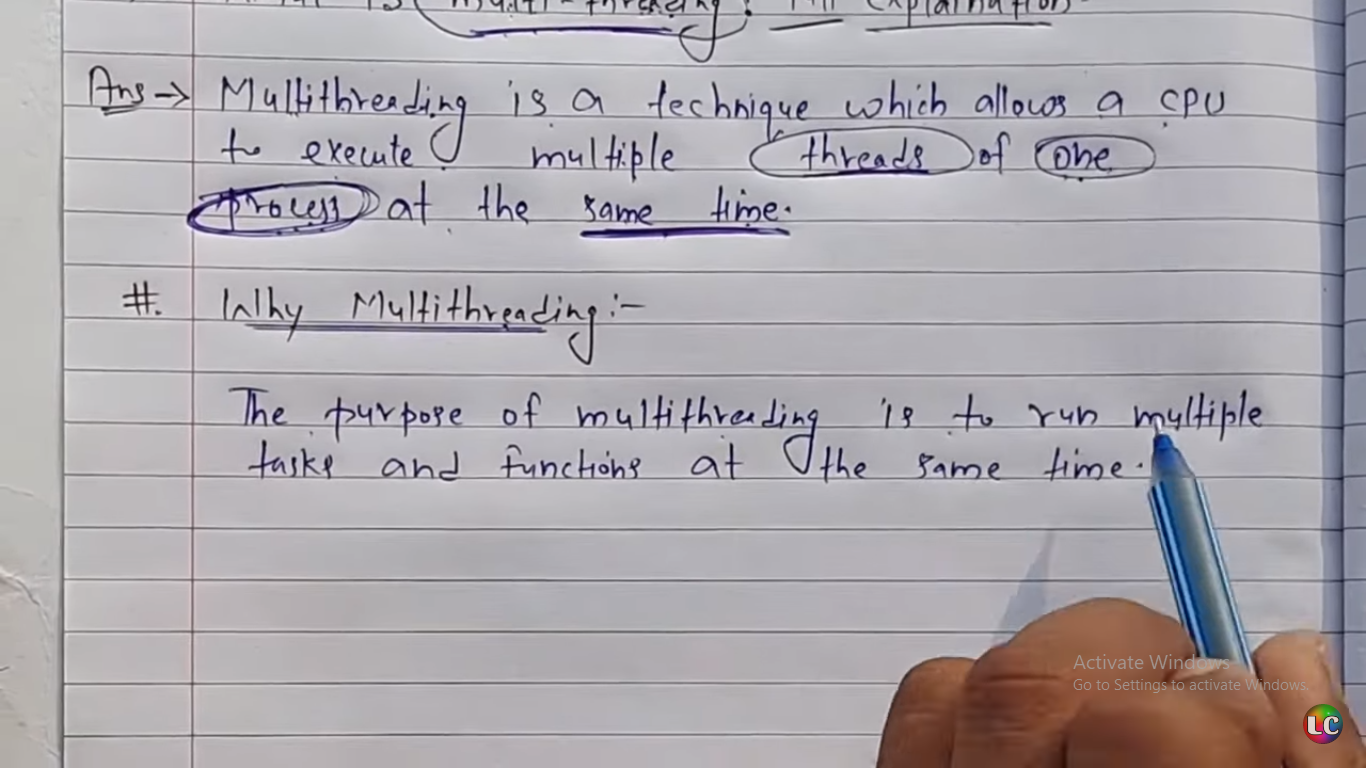 multi-threading? Full Explaination.
Ans→ Multithreading is a technique which allows a CPU
to execute multiple threads of one
process at the same time.
#. Why Multithreading:-
The purpose of multithreading is to run multiple
tasks and functions at the same time.
Activate Windows
Go to Settings to activate Windows.
LC